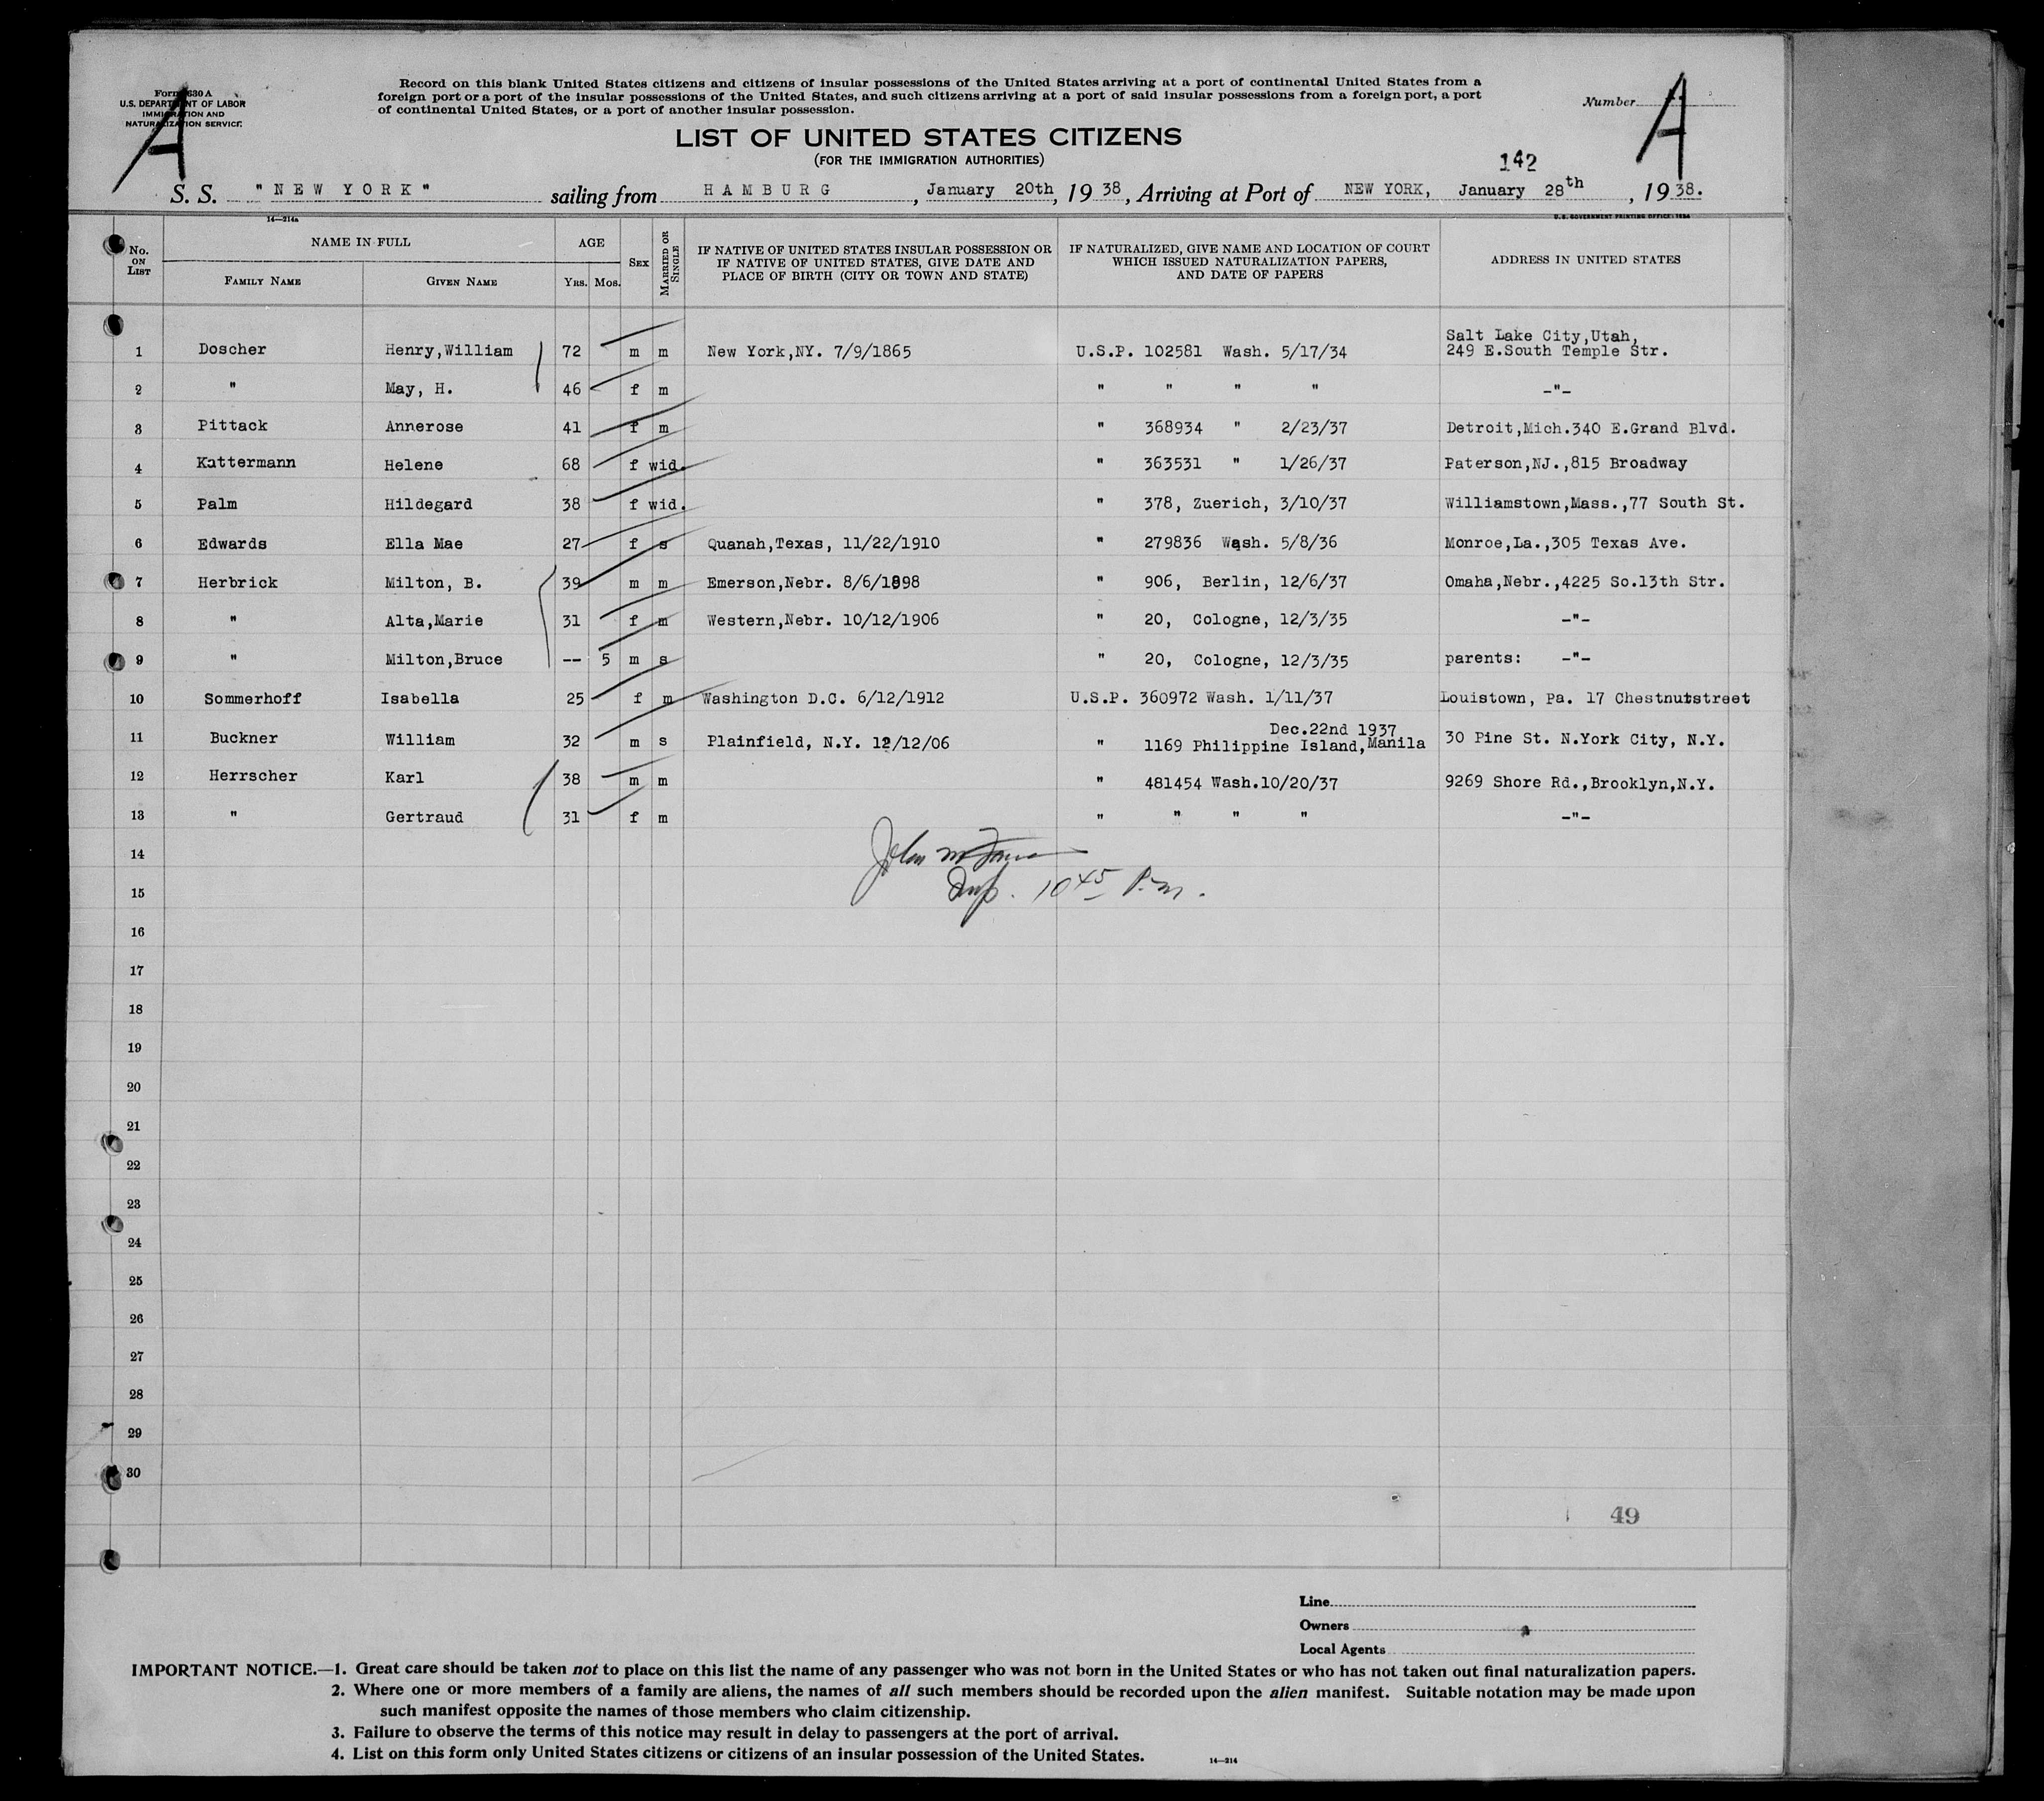 Form 630 A
U.S. DEPARTMENT OF LABOR
IMMIGRATION AND
NATURALIZATION SERVICE
A
Record on this blank United States citizens and citizens of insular possessions of the United States arriving at a port of continental United States from a
foreign port or a port of the insular possessions of the United States, and such citizens arriving at a port of said insular possessions from a foreign port, a port
of continental United States, or a port of another insular possession.
Number
A
LIST OF UNITED STATES CITIZENS
(FOR THE IMMIGRATION AUTHORITIES)
142
S. S. "NEW YORK" sailing from HAMBURG, January 20th, 1938, Arriving at Port of NEW YORK, January 28th, 1938.
14—214a
U.S. GOVERNMENT PRINTING OFFICE: 1934
No. ON LIST
NAME IN FULL
FAMILY NAME
GIVEN NAME
AGE
YRS. MOS.
SEX
MARRIED OR SINGLE
IF NATIVE OF UNITED STATES INSULAR POSSESSION OR
IF NATIVE OF UNITED STATES, GIVE DATE AND
PLACE OF BIRTH (CITY OR TOWN AND STATE)
IF NATURALIZED, GIVE NAME AND LOCATION OF COURT
WHICH ISSUED NATURALIZATION PAPERS,
AND DATE OF PAPERS
ADDRESS IN UNITED STATES
Salt Lake City,Utah,
1 Doscher Henry,William 72 m m New York,NY. 7/9/1865 U.S.P. 102581 Wash. 5/17/34 249 E.South Temple Str.
2 " May, H. 46 f m " " " " -"-
3 Pittack Annerose 41 f m " 368934 " 2/23/37 Detroit,Mich.340 E.Grand Blvd.
4 Kattermann Helene 68 f wid. " 363531 " 1/26/37 Paterson,NJ.,815 Broadway
5 Palm Hildegard 38 f wid. " 378, Zuerich, 3/10/37 Williamstown,Mass.,77 South St.
6 Edwards Ella Mae 27 f s Quanah,Texas, 11/22/1910 " 279836 Wash. 5/8/36 Monroe,La.,305 Texas Ave.
7 Herbrick Milton, B. 39 m m Emerson,Nebr. 8/6/1898 " 906, Berlin, 12/6/37 Omaha,Nebr.,4225 So.13th Str.
8 " Alta,Marie 31 f m Western,Nebr. 10/12/1906 " 20, Cologne, 12/3/35 -"-
9 " Milton,Bruce -- 5 m s " 20, Cologne, 12/3/35 parents: -"-
10 Sommerhoff Isabella 25 f m Washington D.C. 6/12/1912 U.S.P. 360972 Wash. 1/11/37 Louistown, pa. 17 Chestnutstreet
Dec.22nd 1937
11 Buckner William 32 m s Plainfield, N.Y. 12/12/06 " 1169 Philippine Island,Manila 30 Pine St. N.York City, N.Y.
12 Herrscher Karl 38 m m " 481454 Wash.10/20/37 9269 Shore Rd.,Brooklyn,N.Y.
13 " Gertraud 31 f m " " " " -"-
14 John
15 Insp. 10 45 P.m.
16
17
18
19
20
21
22
23
24
25
26
27
28
29
30
49
Line
Owners
Local Agents
IMPORTANT NOTICE.—1. Great care should be taken not to place on this list the name of any passenger who was not born in the United States or who has not taken out final naturalization papers.
2. Where one or more members of a family are aliens, the names of all such members should be recorded upon the alien manifest. Suitable notation may be made upon
such manifest opposite the names of those members who claim citizenship.
3. Failure to observe the terms of this notice may result in delay to passengers at the port of arrival.
4. List on this form only United States citizens or citizens of an insular possession of the United States.
14—214